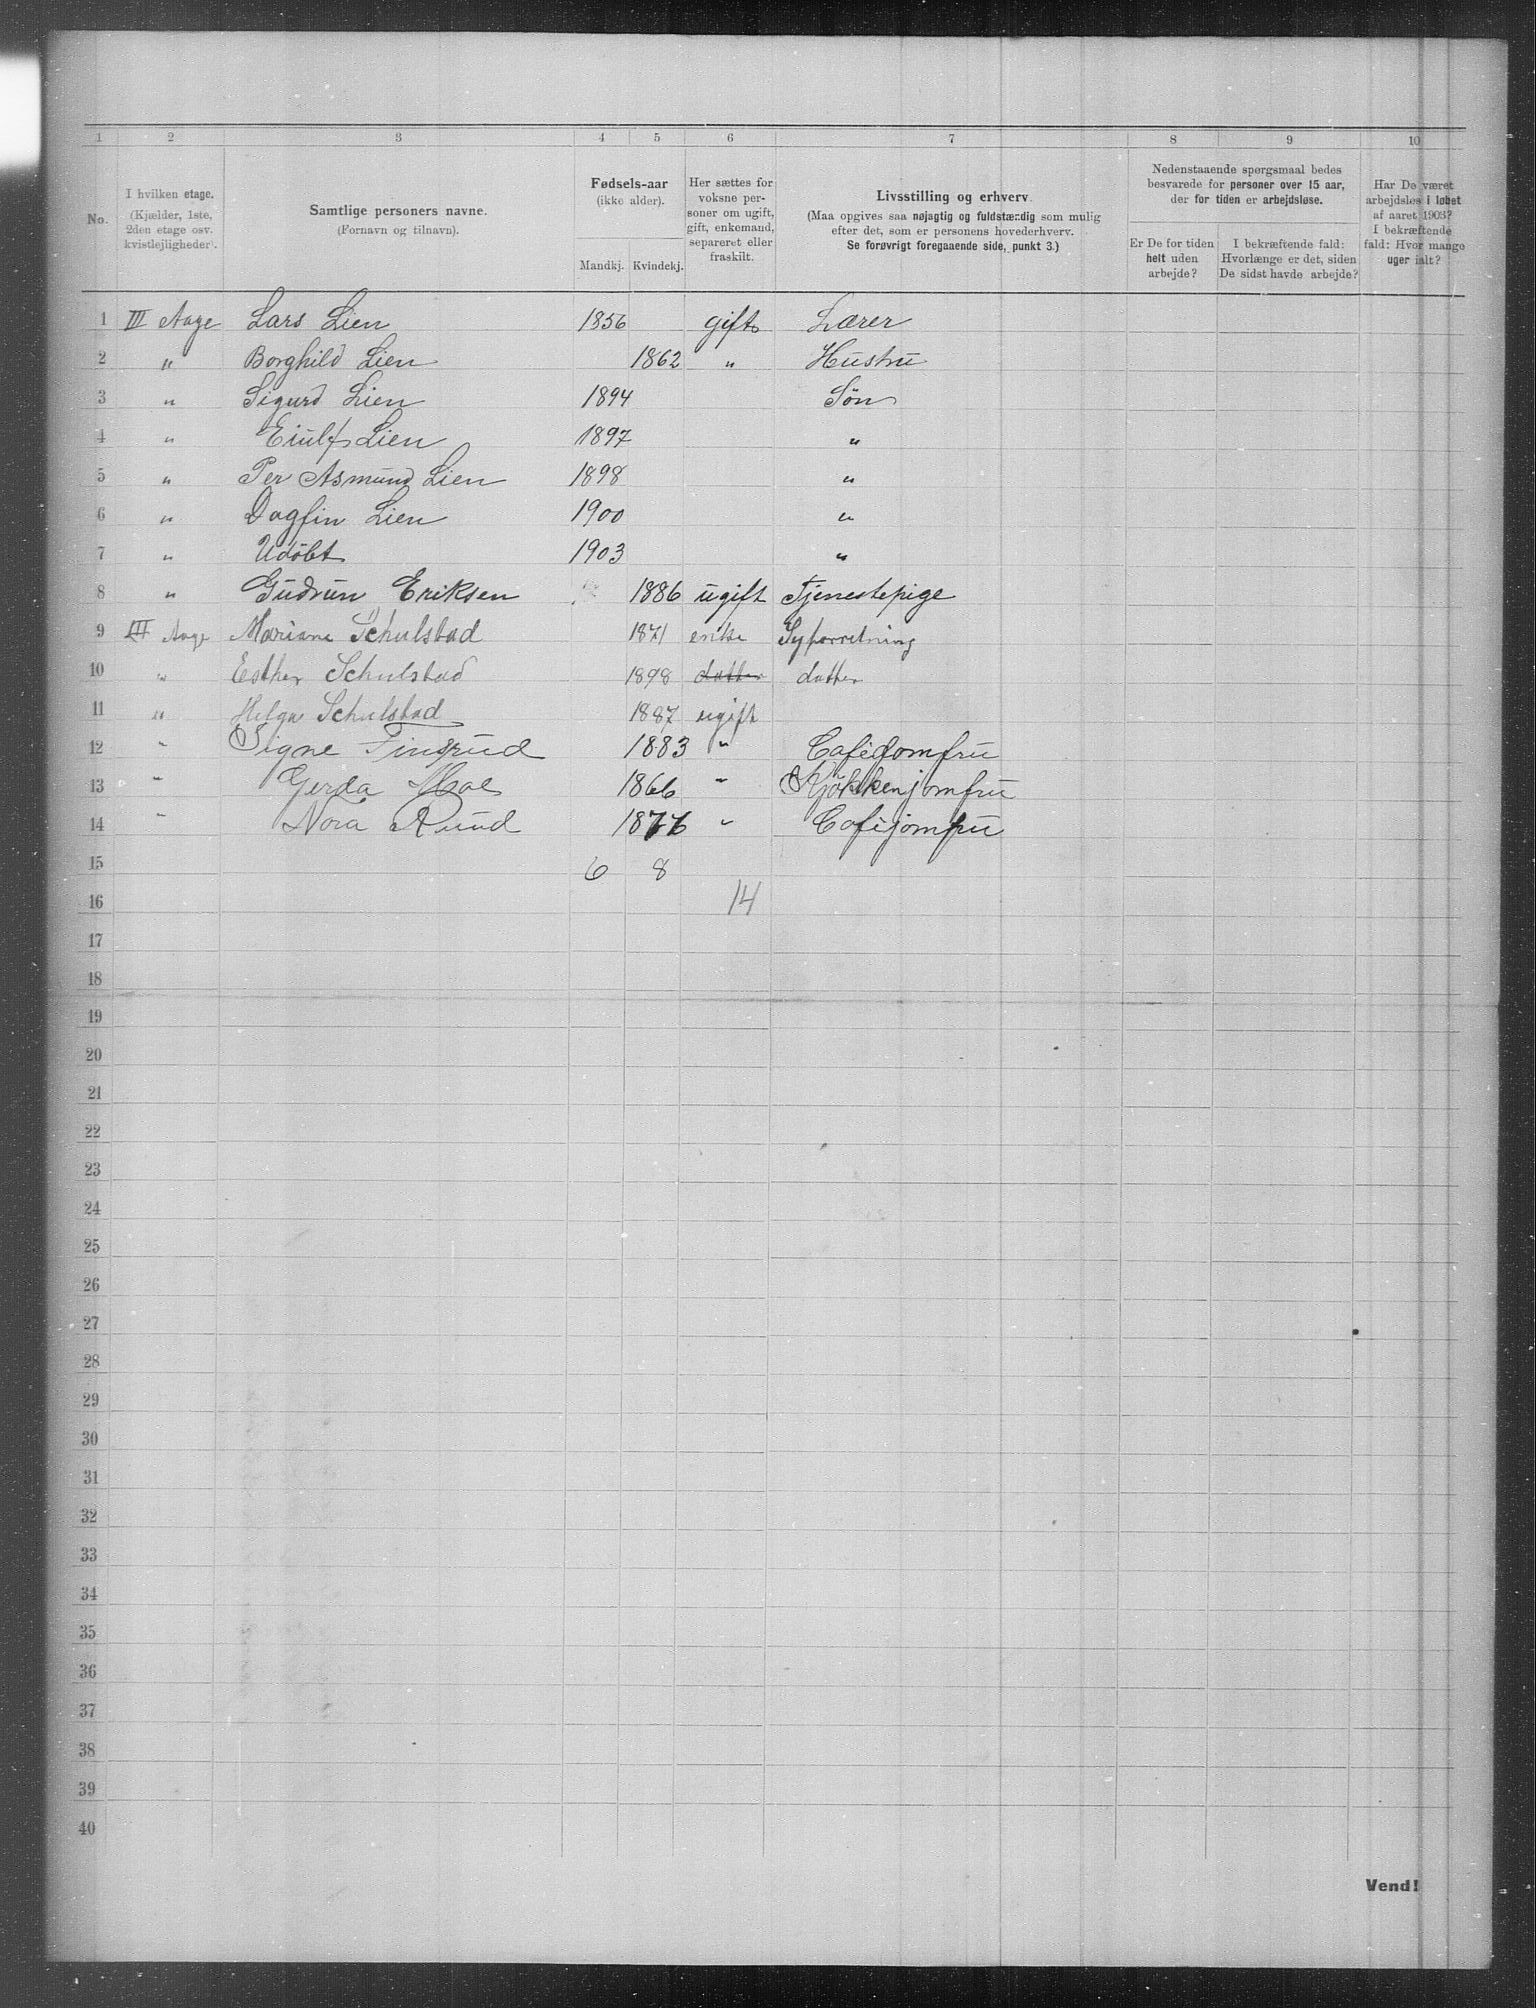 1 2 3 4 5 6 7 8 9 10
No.
I hvilken etage.
(Kjælder, 1ste,
2den etage osv.
kvistlejligheder).
Samtlige personers navne.
(Fornavn og tilnavn).
Fødsels-aar
(ikke alder).
Mandkj. Kvindekj.
Her sættes for
voksne per-
soner om ugift,
gift, enkemand,
separeret eller
fraskilt.
Livsstilling og erhverv.
(Maa opgives saa nøjagtig og fuldstændig som mulig
efter det, som er personens hovederhverv.
Se forøvrigt foregaaende side, punkt 3.)
Nedenstaaende spørgsmaal bedes
besvarede for personer over 15 aar,
der for tiden er arbejdsløse.
Er De for tiden
helt uden
arbejde?
I bekræftende fald:
Hvorlænge er det, siden
De sidst havde arbejde?
Har De været
arbejdsløs i løbet
af aaret 1903?
I bekræftende
fald: Hvor mange
uger ialt?
1 III Lars Lien 1856 gift Lærer
2 " Borghild Lien 1862 " Hustru
3 " Sigurd Lien 1894 Søn
4 " Eiulf Lien 1897 "
5 " Per Asmund Lien 1898 "
6 " Dagfin Lien 1900 "
7 " Udøbt 1903 "
8 " Gudrun Eriksen 1886 ugift Tjenestepige
9 III Mariane Schulstad 1871 enke Syforretning
10 " Esther Schulstad 1898 datter datter
11 " Helga Schulstad 1887 ugift
12 " Signe 1883 " Cafejomfru
13 " Gerda Moe 1866 " Kjøkkenjomfru
14 " Nora Ruud " Cafejomfru
15 6 8
16 14
17
18
19
20
21
22
23
24
25
26
27
28
29
30
31
32
33
34
35
36
37
38
39
40
Vend!